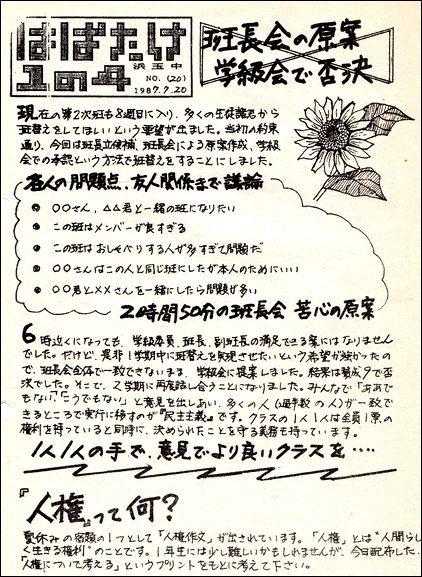 はばたけ
1の4
浜玉中
NO. (20)
1987.7.20
班長会の原案
学級会で否決
現在の第2次班も8週目に入り、多くの生徒諸君から
班替えをしてほしいという要望が出ました。当初の約束
通り、今回は班長立候補、班長会による原案作成、学級
会での承認という方法で班替えをすることにしました。
各人の問題点、友人関係まで議論
○○さん、△△君と一緒の班になりたい
この班はメンバーが良すぎる
この班はおしゃべりする人が多すぎて問題だ
○○さんはこの人と同じ班にしたが本人のためにいい
○○君と××さんを一緒にしたら問題が多い
2時間50分の班長会 苦心の原案
6時近くになっても、学級委員、班長、副班長の満足できる案にはなりません
でした。だけど、是非1学期中に班替えを実現させたいという希望が強かったの
で、班長会全体で一致できないまま、学級会に提案しました。結果は賛成少で否
決でした。そこで、2学期に再度話し合うことになりました。みんなで「ああで
もない」「こうでもない」と意見を出しあい、多くの人(過半数の人)が一致で
きるところで実行に移すのが『民主主義』です。クラスの1人1人は全員1票の
権利を持っていると同時に、決められたことを守る義務も持っています。
1人1人の手で、意見でより良いクラスを‥‥
『人権』って何?
夏休みの宿題の1つとして「人権作文」が出されています。「人権」とは"人間らし
く生きる権利"のことです。1年生には少し難しいかもしれませんが、今日配布した、
「人権について考える」というプリントをもとに考えて下さい。